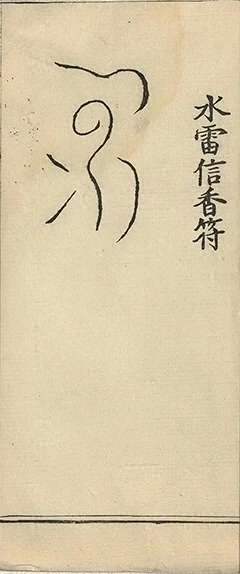 水雷信香符